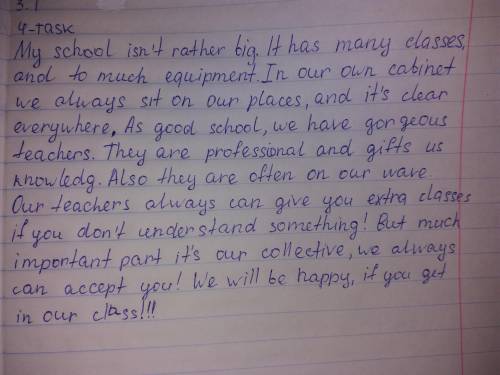 3.1
4-task
My school isn't rather big. It has many classes,
and to much equipment. In our own cabinet
we always sit on our places, and it's clear
everywhere. As good school, we have gorgeous
teachers. They are professional and gifts us
knowledg. Also they are often on our wave.
Our teachers always can give you extra classes
if you don't understand something! But much
important part it's our collective, we always
can accept you! We will be happy, if you get
in our class!!!